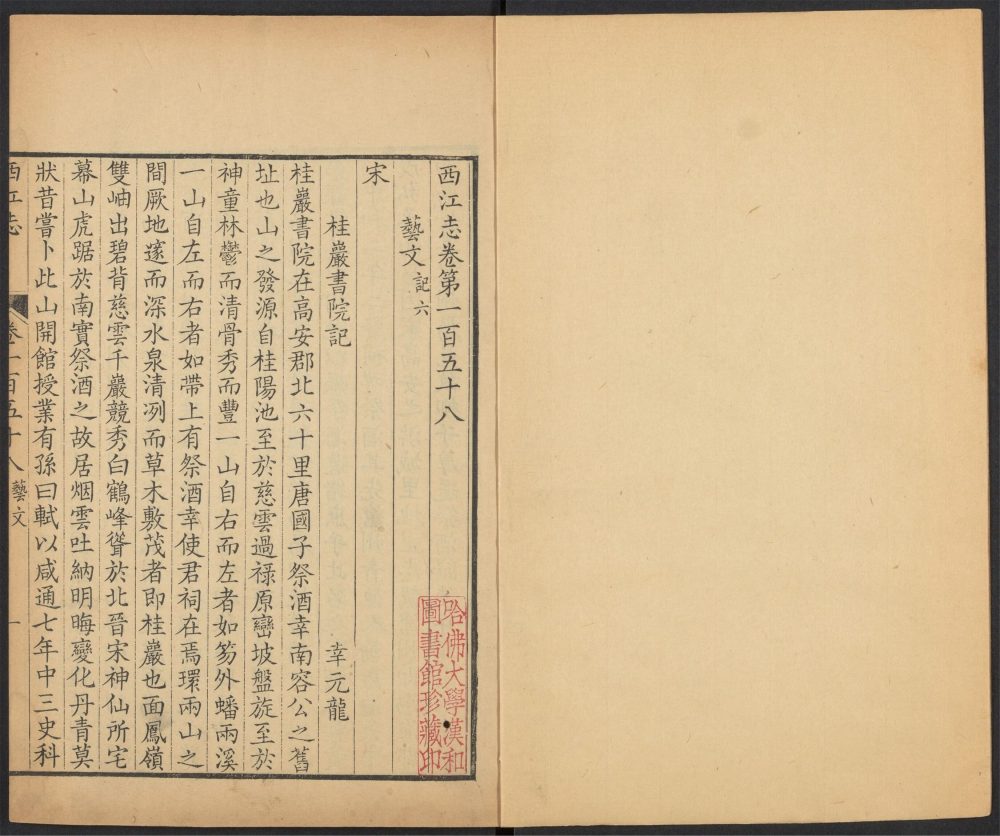 西江志卷第一百五十八
藝文記六
宋
桂巖書院記 幸元龍
桂巖書院在高安郡北六十里唐國子祭酒幸南容公之舊
址也山之發源自桂陽池至於慈雲過祿原巒坡盤旋至於
神童林鬱而清骨秀而豐一山自右而左者如笏外蟠兩溪
一山自左而右者如帶上有祭酒幸使君祠在焉環兩山之
間厥地邃而深水泉清冽而草木敷茂者即桂巖也面鳳嶺
雙岫出碧背慈雲千巖競秀白鶴峰聳於北晉宋神仙所宅
幕山虎踞於南實祭酒之故居烟雲吐納明晦變化丹青莫
狀昔嘗卜此山開館授業有孫曰軾以咸通七年中三史科
西江志 卷一百五十八 藝文 一
哈佛大學漢和
圖書館珍藏印